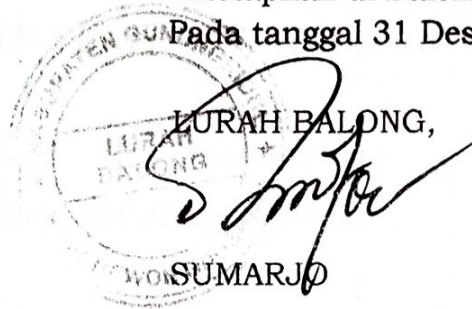 Pada tanggal 31 Des
LURAH BALONG,
LURAH
BALONG
SUMARJO